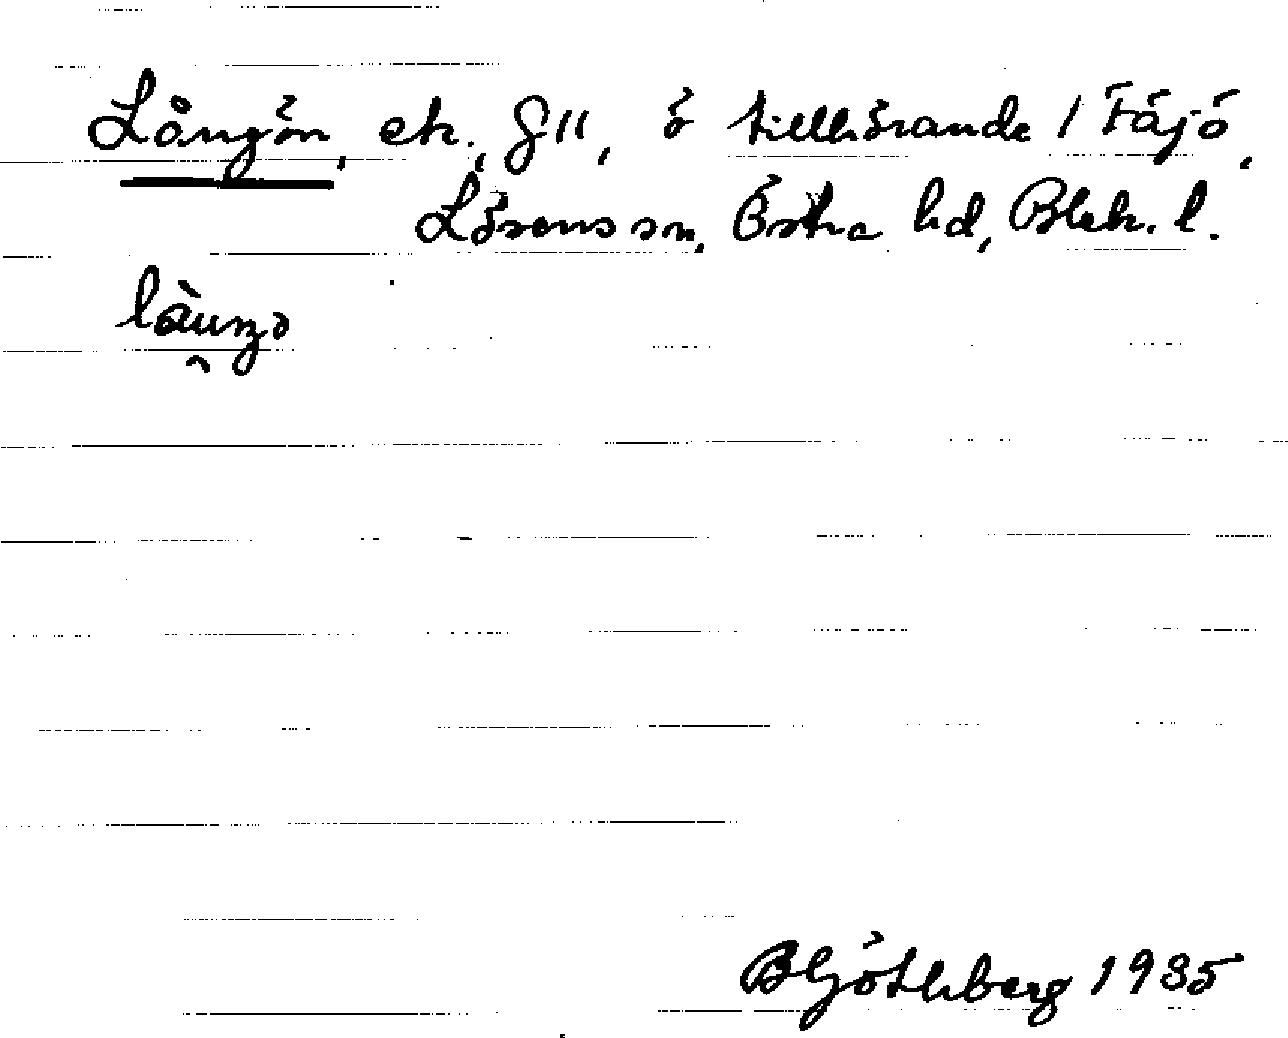 Långön, ek., g11, ö tillhörande 1 Fäjö,
Lösens sn, Östra hd, Blek. l.
B Göthberg 1935